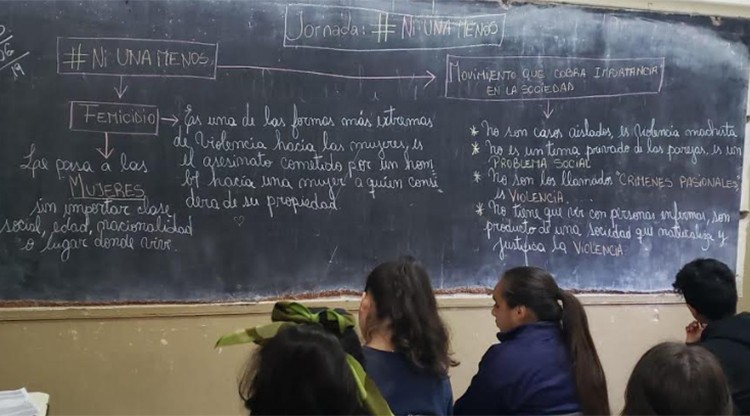 Jornada: # Ni UNA MENOS
# Ni UNA MENOS
MOVIMIENTO QUE COBRA IMPORTANCIA
EN LA SOCIEDAD
FEMICIDIO
Es una de las formas más extremas
de violencia hacia las mujeres, es
el asesinato cometido por un hom
bre hacia una mujer a quien consi
dera de su propiedad
Les pasa a las
MUJERES
sin importar clase
social, edad, nacionalidad
o lugar donde vive.
* No son casos aislados, es violencia machista
* No es un tema privado de las parejas, es un
PROBLEMA SOCIAL
* No son los llamados "CRIMENES PASIONALES"
es VIOLENCIA
* No tiene que ver con personas enfermas, son
producto de una sociedad que naturaliza y
justifica la VIOLENCIA